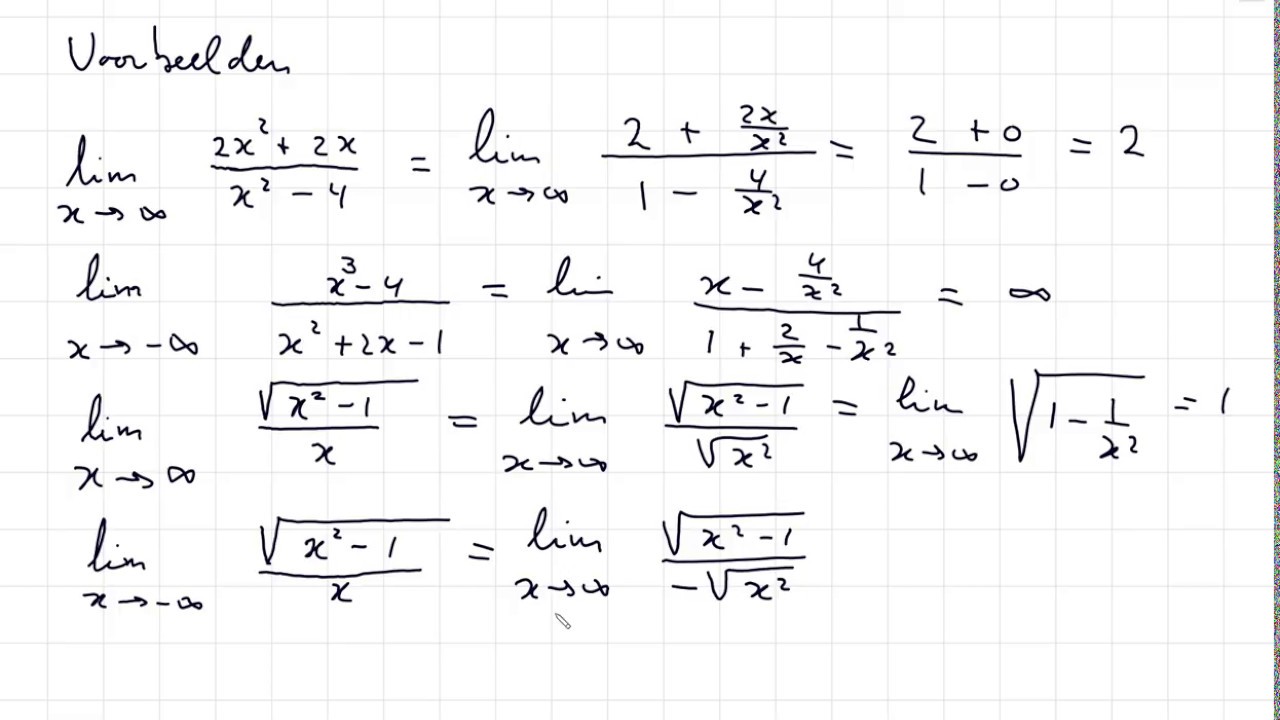 Voorbeelden
lim x→∞ (2x² + 2x)/(x² - 4) = lim x→∞ (2 + 2x/x²)/(1 - 4/x²) = (2 + 0)/(1 - 0) = 2
lim x→-∞ (x³ - 4)/(x² + 2x - 1) = lim x→∞ (x - 4/x²)/(1 + 2/x - 1/x²) = ∞
lim x→∞ √(x² - 1)/x = lim x→∞ √(x² - 1)/√(x²) = lim x→∞ √(1 - 1/x²) = 1
lim x→-∞ √(x² - 1)/x = lim x→∞ √(x² - 1)/(-√(x²))